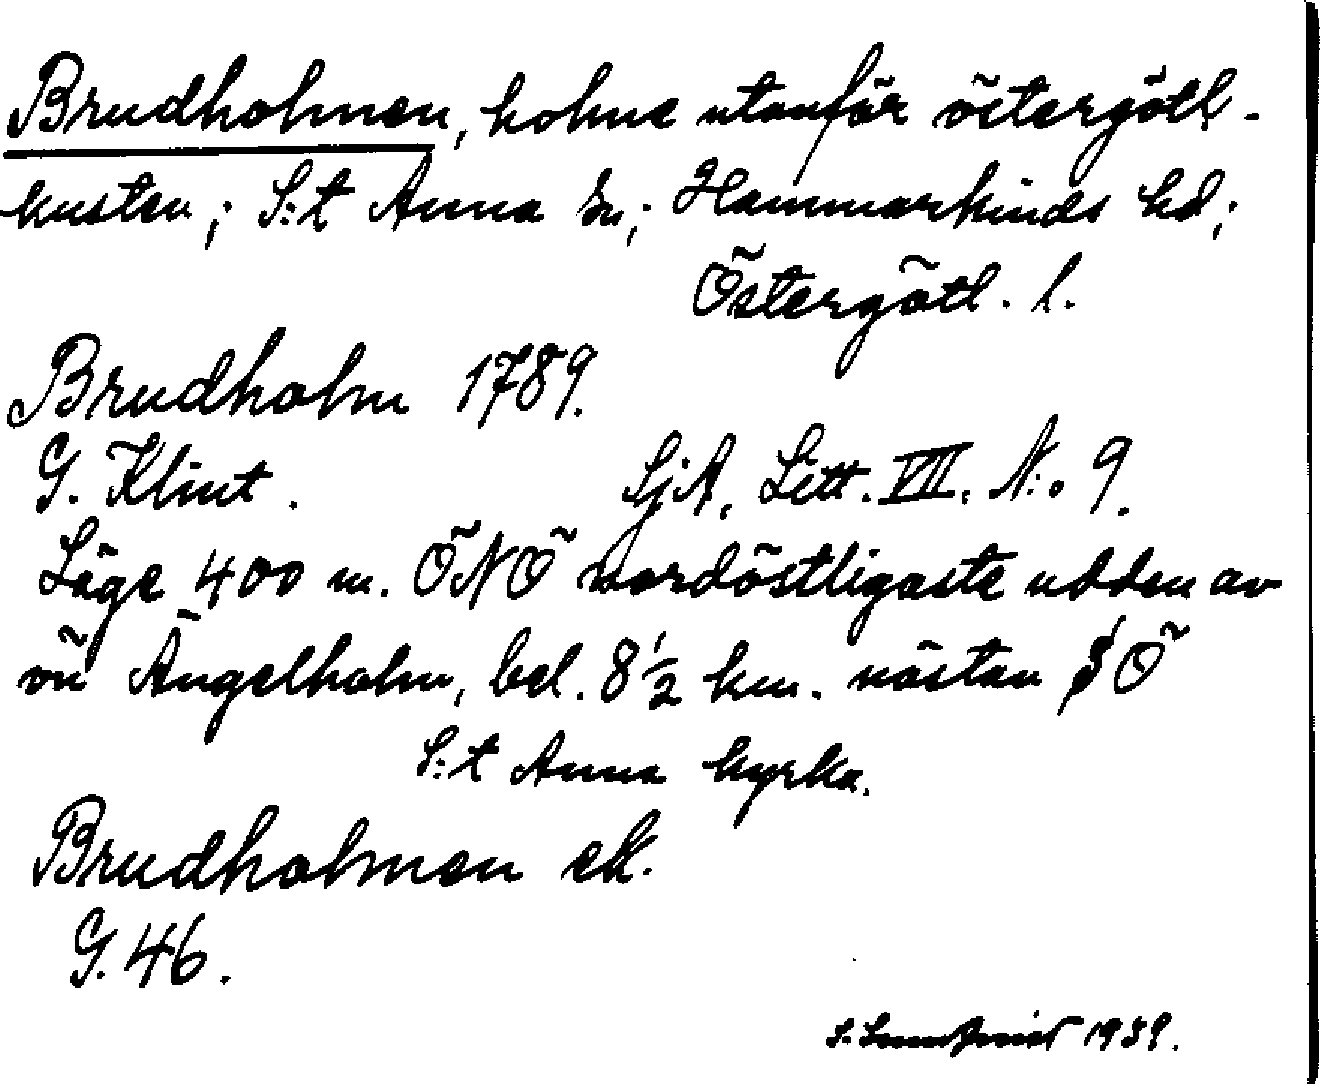 Brudholmen, holme utanför östergötl.
kusten; S:t Anna sn; Hammarkinds hd;
Östergötl. l.
Brudholm 1789.
G. Klint. SjA, Litt. VIII. N:o 9.
Läge 400 m. ÖNÖ nordöstligaste udden av
ön Ängelholm, bel. 8½ km. nästan Ö
S:t Anna kyrka.
Brudholmen ek.
G. 46.
1939.